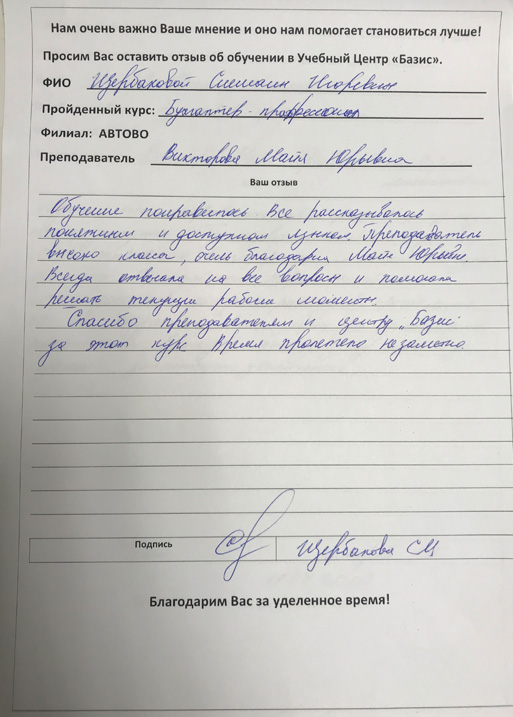 Нам очень важно Ваше мнение и оно нам помогает становиться лучше!
Просим Вас оставить отзыв об обучении в Учебный Центр «Базис».
ФИО Щербаковой Игоревны
Пройденный курс: Бухгалтер - профессионал
Филиал: АВТОВО
Преподаватель Викторова Майя Юрьевна
Ваш отзыв
Обучение понравилось. Все рассказывалось
понятным и доступным языком. Преподаватель
высоко класса, очень благодарна Майе Юрьевне.
Всегда отвечала на все вопросы и помогала
решать текущие рабочие моменты.
Спасибо преподавателям и центру „Базис"
за этот курс. Время пролетело незаметно
Подпись Щербакова СИ
Благодарим Вас за уделенное время!